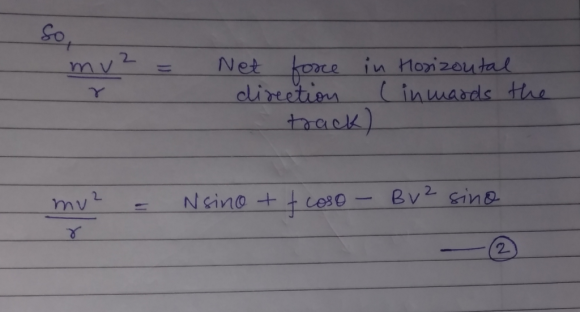 So,
mv²/r = Net force in Horizontal
direction (inwards the
track)
mv²/r = Nsinθ + f cosθ − Bv² sinθ
— ②